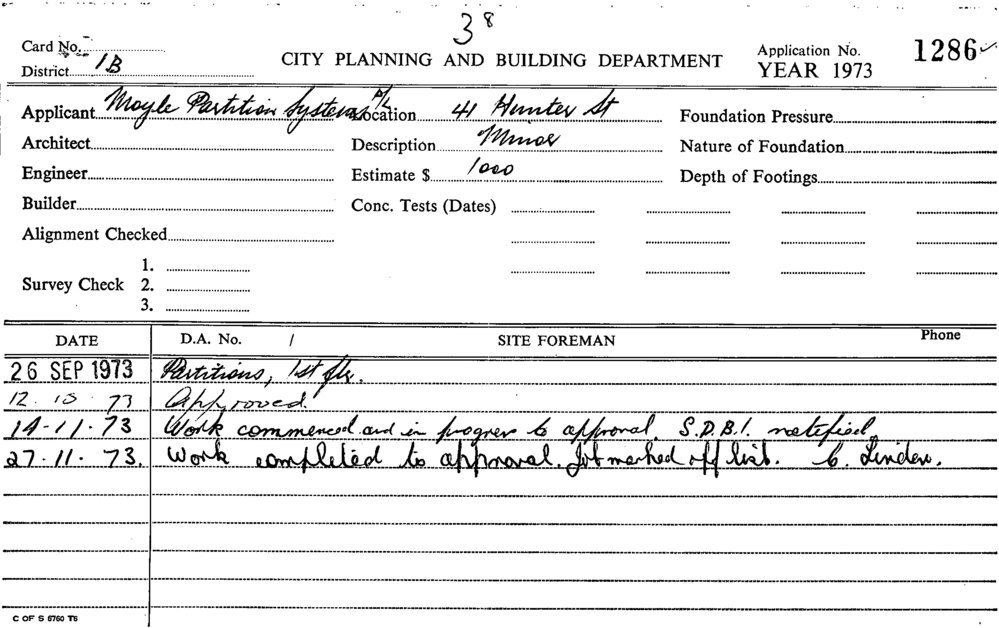 38
Card No.
District 1B
CITY PLANNING AND BUILDING DEPARTMENT
Application No. 1286
YEAR 1973
Applicant Moyle Partition Systems P/L Location 41 Hunter St Foundation Pressure
Architect Description Minor Nature of Foundation
Engineer Estimate $ 1000 Depth of Footings
Builder Conc. Tests (Dates)
Alignment Checked
1.
Survey Check 2.
3.
DATE D.A. No. / SITE FOREMAN Phone
26 SEP 1973 Partitions, 1st flr.
12.10.73 Approved.
14-11-73 Work commenced and in progress to approval. S.D.B.I. notified
27.11.73. Work completed to approval. Job marked off list. C. Linden.
C OF S 6760 T6